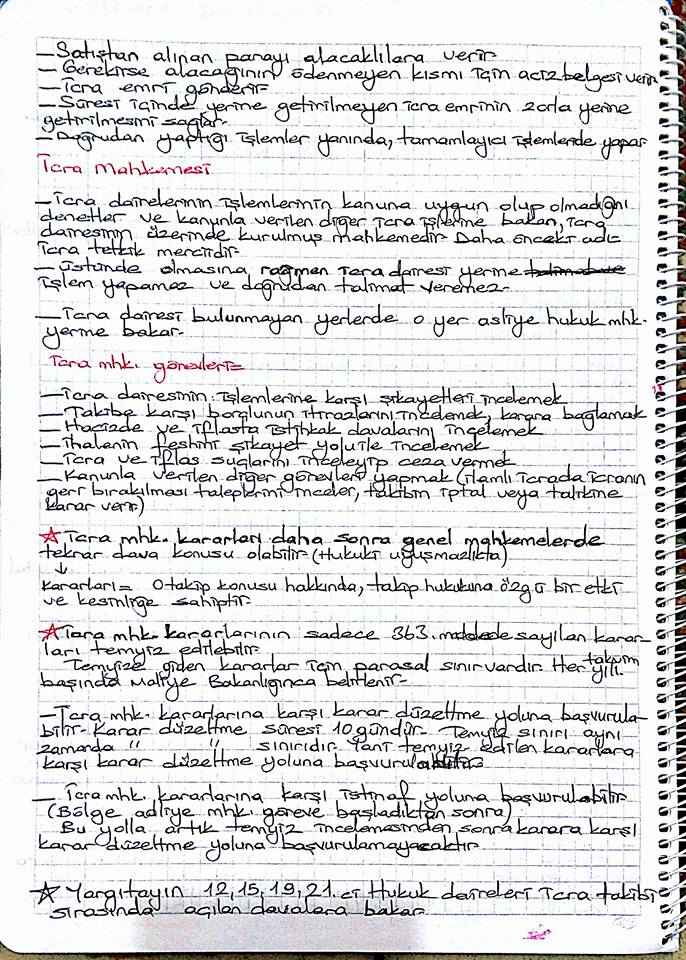 — Satıştan alınan parayı alacaklılara verir
— Gerekirse alacağının ödenmeyen kısmı için aciz belgesi verir
— İcra emri gönderir
— Süresi içinde yerine getirilmeyen icra emrinin zorla yerine
getirilmesini sağlar
— Doğrudan yaptığı işlemler yanında, tamamlayıcı işlemlerde yapar
İcra Mahkemesi
— İcra dairelerinin işlemlerinin kanuna uygun olup olmadığını
denetler ve kanunla verilen diğer icra işlerine bakan, icra
dairesinin üzerinde kurulmuş mahkemedir. Daha önceki adı
icra tetkik merciidir.
— Üstünde olmasına rağmen icra dairesi yerine
işlem yapamaz ve doğrudan talimat veremez.
— İcra dairesi bulunmayan yerlerde o yer asliye hukuk mhk.
yerine bakar.
İcra mhk. görevleri=
— İcra dairesinin işlemlerine karşı şikayetleri incelemek
— Takibe karşı borçlunun itirazlarını incelemek, karara bağlamak
— Hacizde ve iflasta istihkak davalarını incelemek
— İhalenin feshini şikayet yolu ile incelemek
— İcra ve iflas suçlarını inceleyip ceza vermek
— Kanunla verilen diğer görevleri yapmak (ilamlı icrada icranın
geri bırakılması taleplerini inceler, takibin iptal veya talikine
karar verir)
☆ İcra mhk. kararları daha sonra genel mahkemelerde
tekrar dava konusu olabilir (Hukuki uyuşmazlıkta)
↓
kararları= O takip konusu hakkında, takip hukukuna özgü bir etki
ve kesinliğe sahiptir.
☆ İcra mhk. kararlarının sadece 363. maddede sayılan karar-
ları temyiz edilebilir.
Temyize giden kararlar için parasal sınır vardır. Her takvim yılı
başında Maliye Bakanlığınca belirlenir.
— İcra mhk. kararlarına karşı karar düzeltme yoluna başvurula-
bilir. Karar düzeltme süresi 10 gündür. Temyiz sınırı aynı
zamanda " " sınırıdır. Yani temyiz edilen kararlara
karşı karar düzeltme yoluna başvurulabilir.
— İcra mhk. kararlarına karşı istinaf yoluna başvurulabilir
(Bölge adliye mhk. göreve başladıktan sonra)
Bu yolla artık temyiz incelemesinden sonra karara karşı
karar düzeltme yoluna başvurulamayacaktır.
☆ Yargıtayın 12, 15, 19, 21. ci Hukuk daireleri icra takibi
sırasında açılan davalara bakar.